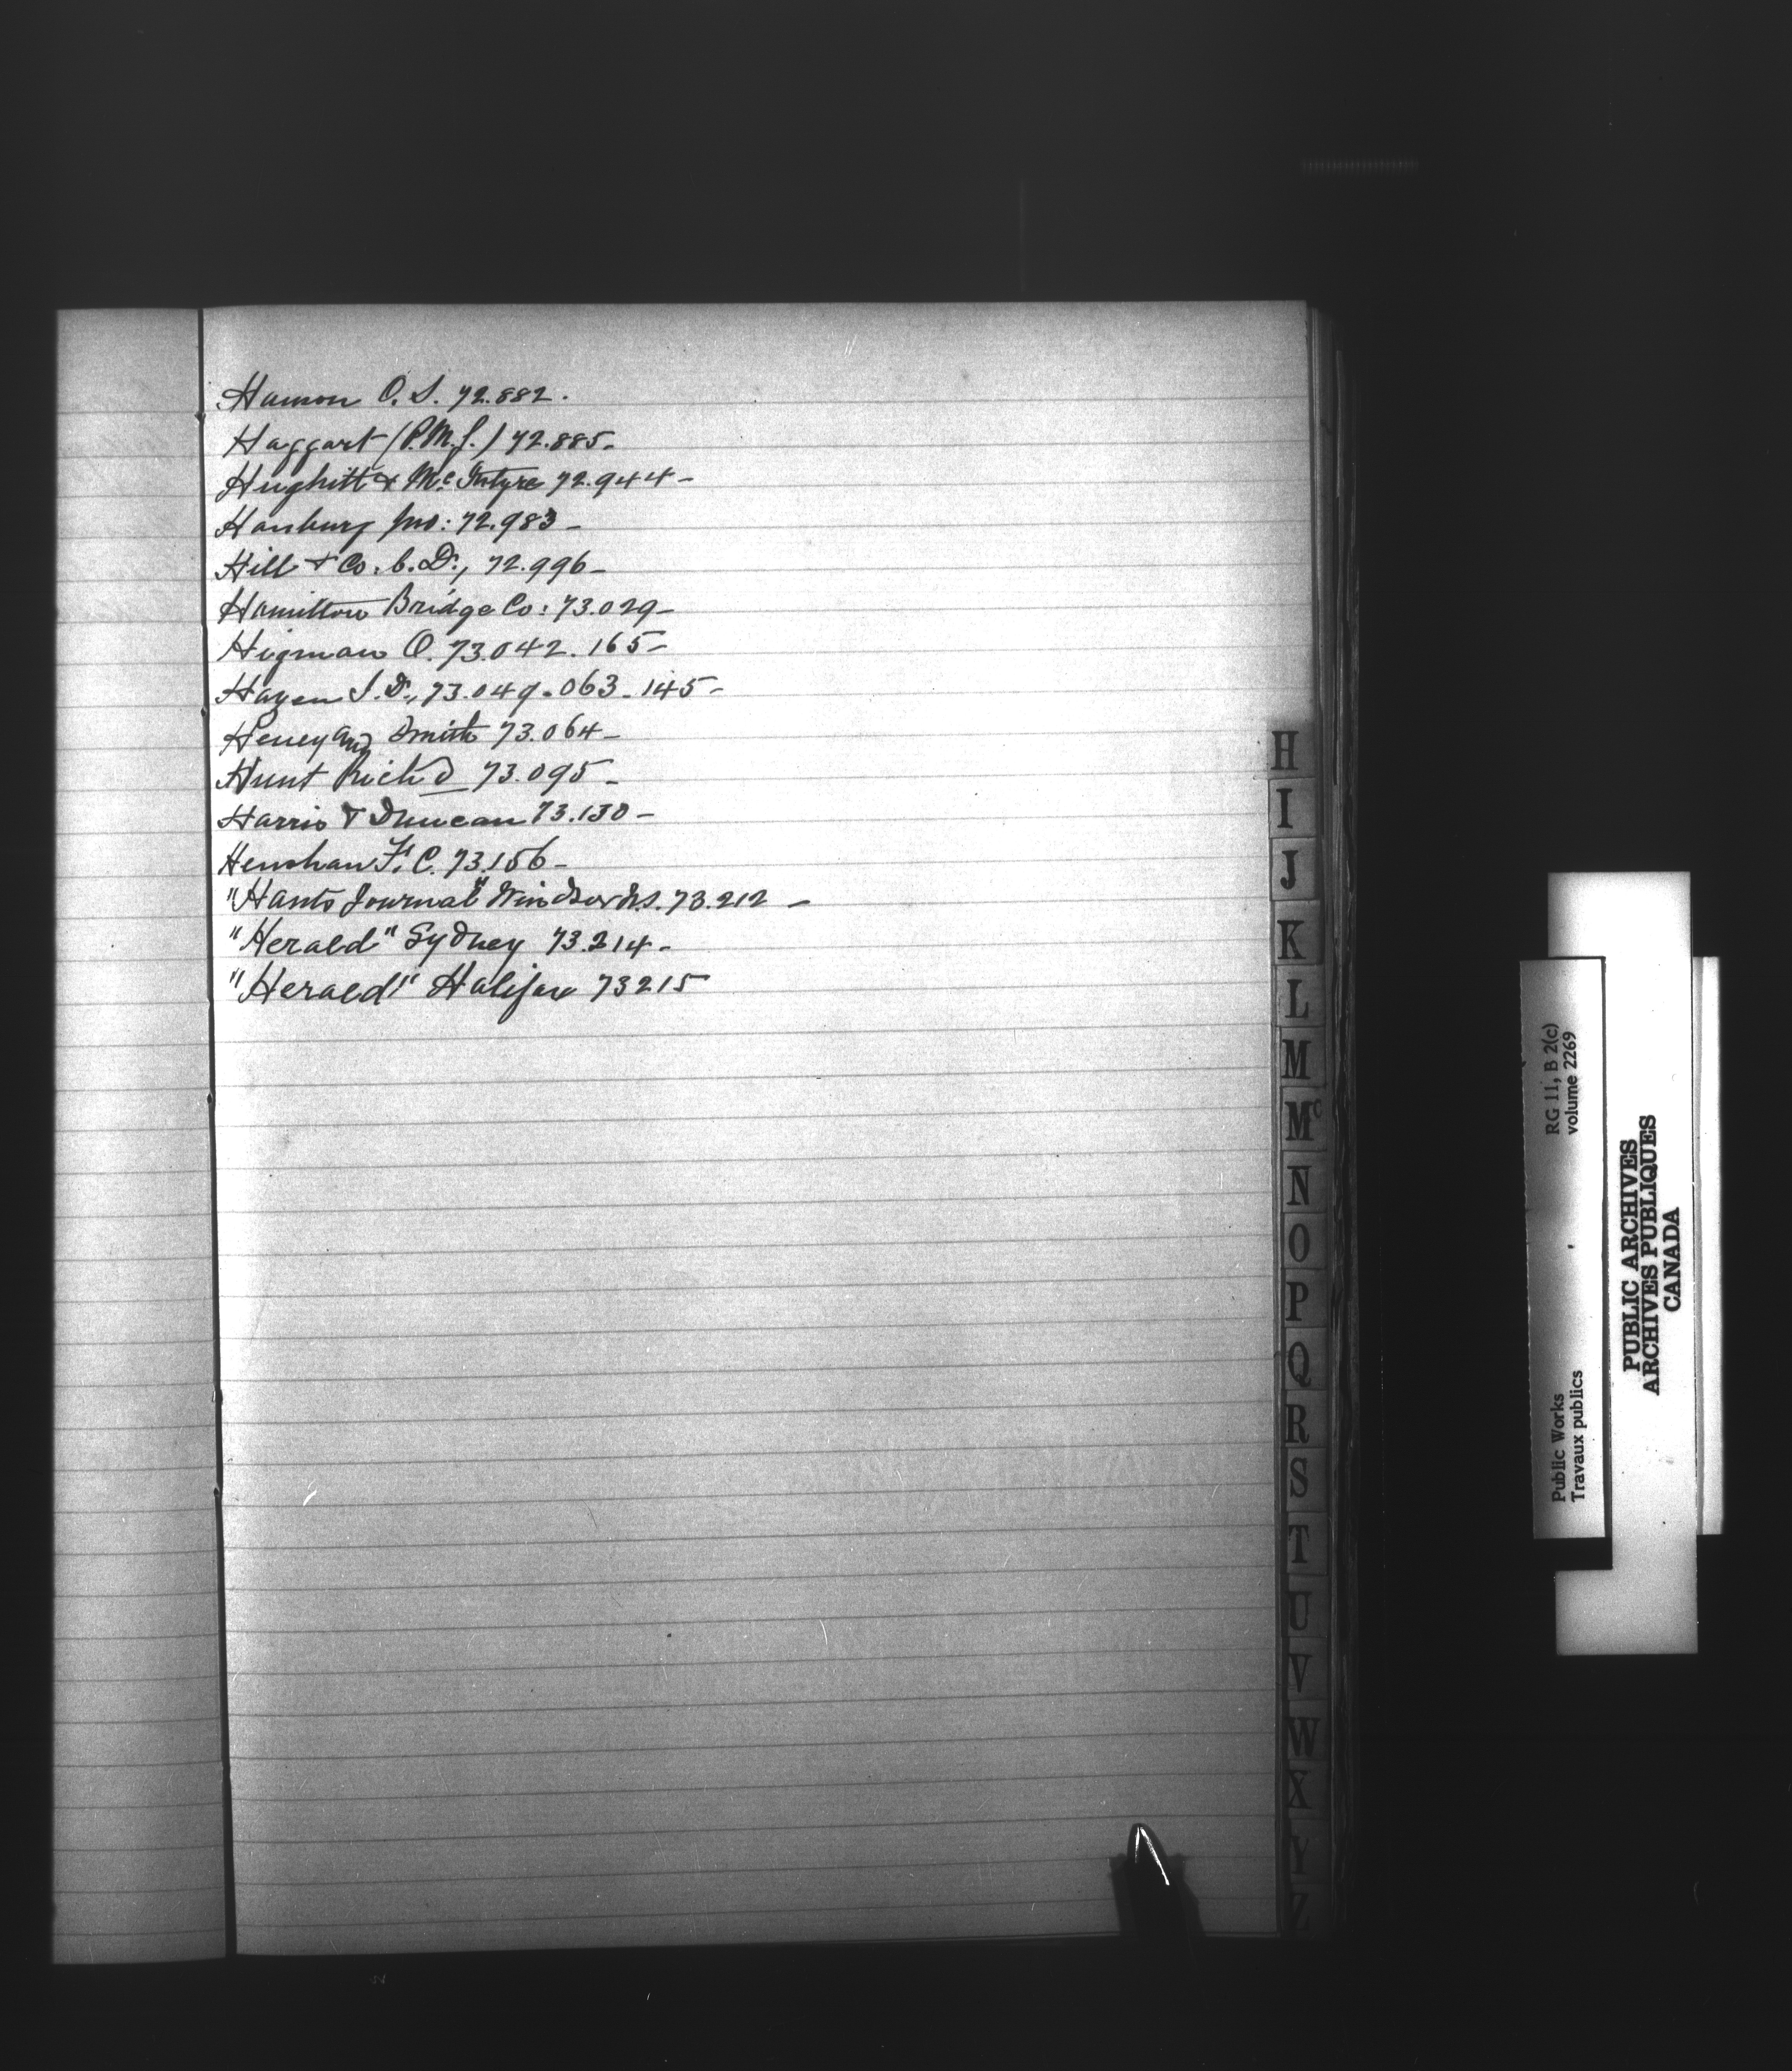 Hamon O. S. 72.882.
Haggart (P.M.G.) 72.885-
Hughitt & McIntyre 72.944-
Hanbury Jno: 72.983-
Hill & Co. C. D., 72.996-
Hamilton Bridge Co: 73.029-
Higman O. 73.042. 165-
Hazen J. D., 73.049. 063. 145-
Heney and Smith 73.064-
Hunt Richd 73.095-
Harris & Duncan 73.130-
Henshaw F. C. 73.156-
"Hants Journal" Windsor N.S. 73.212 -
"Herald" Sydney 73.214-
"Herald" Halifax 73215
H
I
J
K
L
M
Mc
N
O
P
Q
R
S
T
U
V
W
X
Y
Z
RG 11, B 2(c)
volume 2269
Public Works
Travaux publics
PUBLIC ARCHIVES
ARCHIVES PUBLIQUES
CANADA